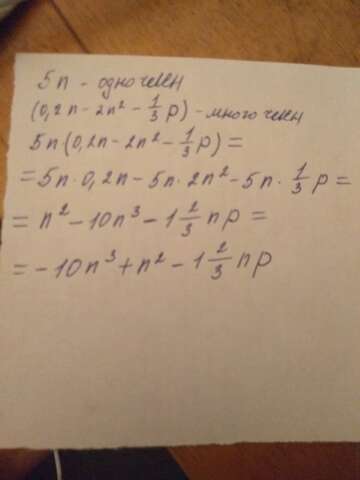 5n - одночлен
(0,2n - 2n² - 1/3 p) - многочлен
5n(0,2n - 2n² - 1/3 p) =
= 5n · 0,2n - 5n · 2n² - 5n · 1/3 p =
= n² - 10n³ - 1 2/3 np =
= - 10n³ + n² - 1 2/3 np